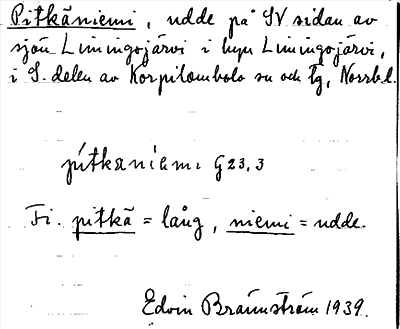 Pitkäniemi, udde på SV sidan av
sjön Liningojärvi i byn Liningojärvi,
i S. delen av Korpilombolo sn och tg, Norrb.l.
pitkaniemi G23,3
Fi. pitkä = lång, niemi = udde.
Edvin Brännström 1939.